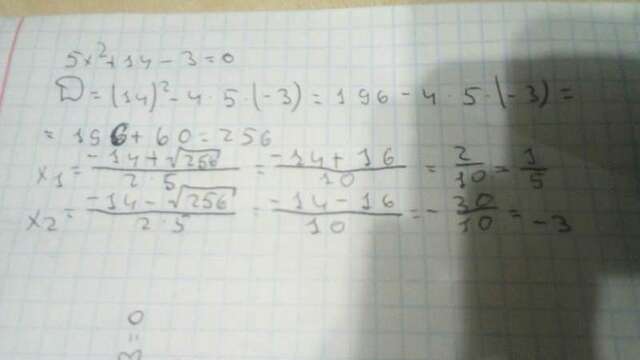 5x²+14-3=0
D=(14)²-4·5·(-3)=196-4·5·(-3)=
=196+60=256
x₁=(-14+√256)/(2·5)=(-14+16)/10=2/10=1/5
x₂=(-14-√256)/(2·5)=(-14-16)/10=-30/10=-3